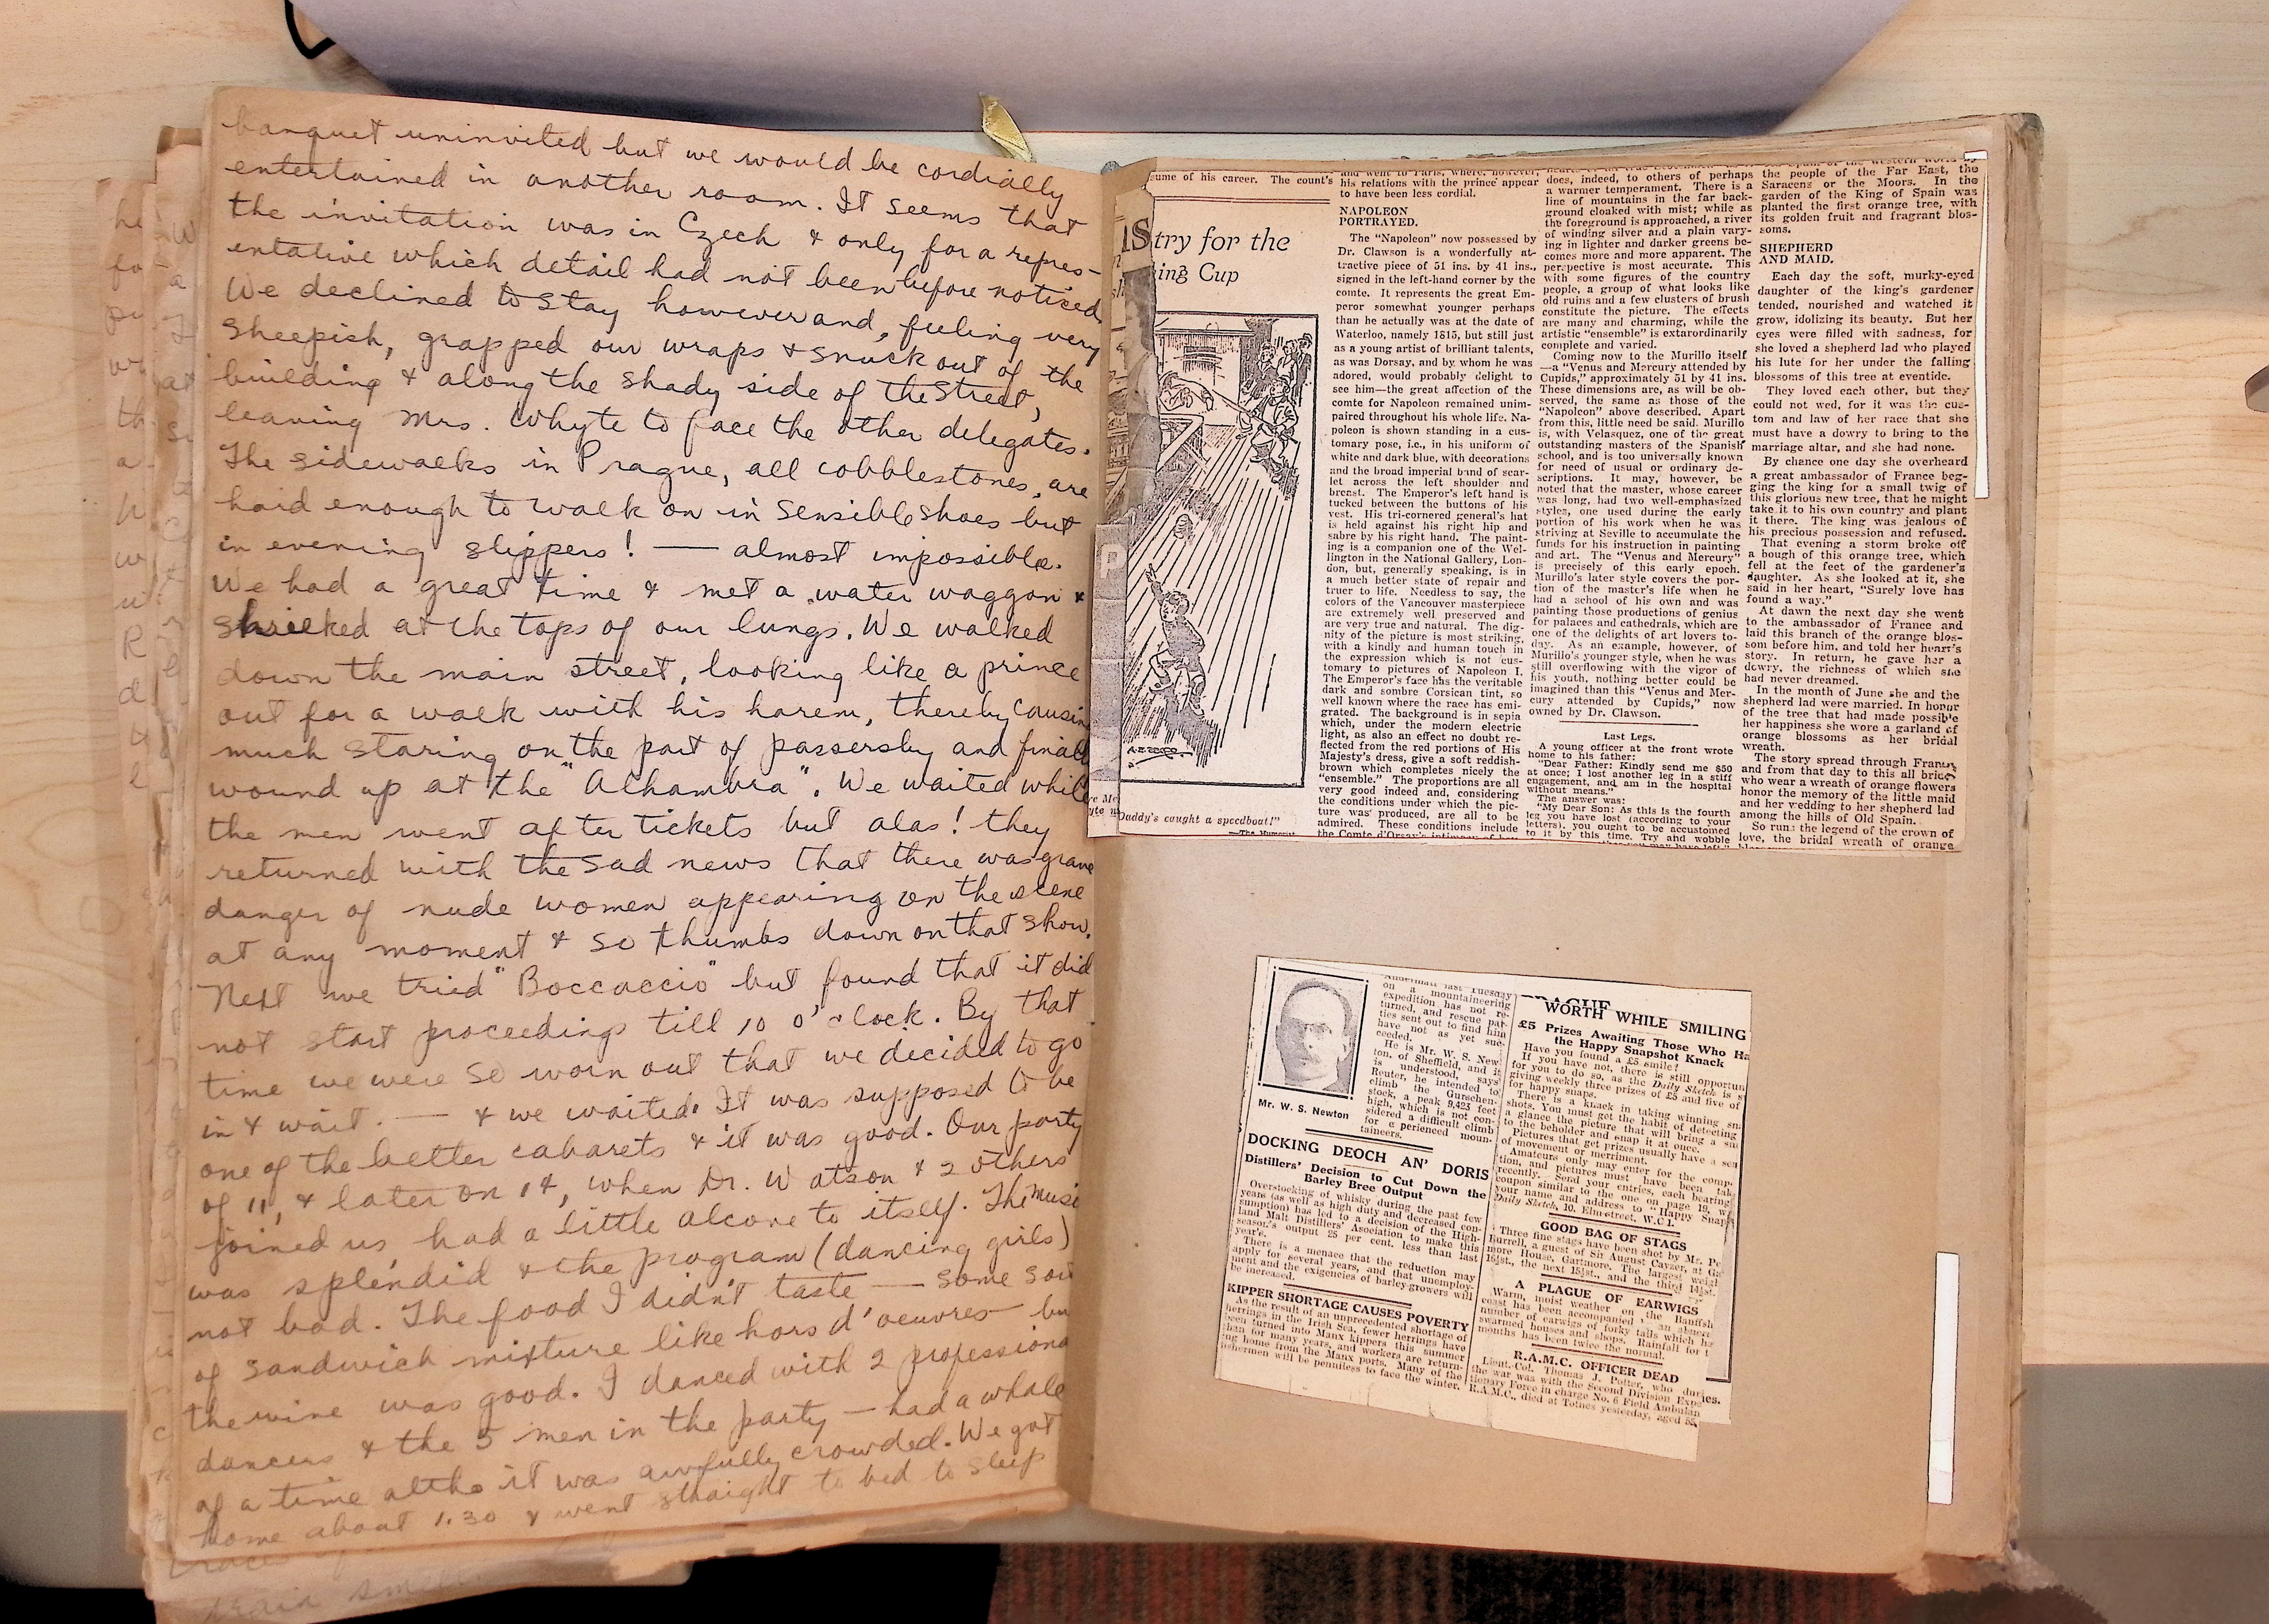 banquet uninvited but we would be cordially
entertained in another room. It seems that
the invitation was in Czech & only for a repres-
entative which detail had not been before noticed.
We declined to stay however and, feeling very
sheepish, grapped our wraps & snuck out of the
building & along the shady side of the street,
leaving Mrs. Whyte to face the other delegates.
The sidewalks in Prague, all cobblestones, are
hard enough to walk on in sensible shoes but
in evening slippers! — almost impossible.
We had a great time & met a water waggon &
shrieked at the tops of our lungs. We walked
down the main street, looking like a prince
out for a walk with his harem, thereby causing
much staring on the part of passersby and finally
wound up at the "Alhambra". We waited while
the men went after tickets but alas! they
returned with the sad news that there was grave
danger of nude women appearing on the scene
at any moment & so thumbs down on that show.
Next we tried "Boccaccio" but found that it did
not start proceedings till 10 o'clock. By that
time we were so worn out that we decided to go
in & wait. — & we waited. It was supposed to be
one of the better cabarets & it was good. Our party
of 11, & later on 14, when Dr. Watson & 2 others
joined us, had a little alcove to itself. The music
was splendid & the program (dancing girls)
not bad. The food I didn't taste — some sort
of sandwich mixture like hors d'oeuvres — but
the wine was good. I danced with 2 professional
dancers & the 5 men in the party — had a whale
of a time altho it was awfully crowded. We got
home about 1.30 & went straight to bed to sleep
sume of his career. The count's
try for the
ing Cup
Daddy's caught a speedboat!"
and went to Paris, where, however,
his relations with the prince appear
to have been less cordial.
NAPOLEON
PORTRAYED.
The "Napoleon" now possessed by
Dr. Clawson is a wonderfully at-
tractive piece of 51 ins. by 41 ins.,
signed in the left-hand corner by the
comte. It represents the great Em-
peror somewhat younger perhaps
than he actually was at the date of
Waterloo, namely 1815, but still just
as a young artist of brilliant talents,
as was Dorsay, and by whom he was
adored, would probably delight to
see him—the great affection of the
comte for Napoleon remained unim-
paired throughout his whole life. Na-
poleon is shown standing in a cus-
tomary pose, i.e., in his uniform of
white and dark blue, with decorations
and the broad imperial band of scar-
let across the left shoulder and
breast. The Emperor's left hand is
tucked between the buttons of his
vest. His tri-cornered general's hat
is held against his right hip and
sabre by his right hand. The paint-
ing is a companion one of the Wel-
lington in the National Gallery, Lon-
don, but, generally speaking, is in
a much better state of repair and
truer to life. Needless to say, the
colors of the Vancouver masterpiece
are extremely well preserved and
are very true and natural. The dig-
nity of the picture is most striking,
with a kindly and human touch in
the expression which is not cus-
tomary to pictures of Napoleon I.
The Emperor's face has the veritable
dark and sombre Corsican tint, so
well known where the race has emi-
grated. The background is in sepia
which, under the modern electric
light, as also an effect no doubt re-
flected from the red portions of His
Majesty's dress, give a soft reddish-
brown which completes nicely the
"ensemble." The proportions are all
very good indeed and, considering
the conditions under which the pic-
ture was produced, are all to be
admired. These conditions include
does, indeed, to others of perhaps
a warmer temperament. There is a
line of mountains in the far back-
ground cloaked with mist; while as
the foreground is approached, a river
of winding silver and a plain vary-
ing in lighter and darker greens be-
comes more and more apparent. The
perspective is most accurate. This
with some figures of the country
people, a group of what looks like
old ruins and a few clusters of brush
constitute the picture. The effects
are many and charming, while the
artistic "ensemble" is extarordinarily
complete and varied.
Coming now to the Murillo itself
—a "Venus and Mercury attended by
Cupids," approximately 51 by 41 ins.
These dimensions are, as will be ob-
served, the same as those of the
"Napoleon" above described. Apart
from this, little need be said. Murillo
is, with Velasquez, one of the great
outstanding masters of the Spanish
school, and is too universally known
for need of usual or ordinary de-
scriptions. It may, however, be
noted that the master, whose career
was long, had two well-emphasized
styles, one used during the early
portion of his work when he was
striving at Seville to accumulate the
funds for his instruction in painting
and art. The "Venus and Mercury"
is precisely of this early epoch.
Murillo's later style covers the por-
tion of the master's life when he
had a school of his own and was
painting those productions of genius
for palaces and cathedrals, which are
one of the delights of art lovers to-
day. As an example, however, of
Murillo's younger style, when he was
still overflowing with the vigor of
his youth, nothing better could be
imagined than this "Venus and Mer-
cury attended by Cupids," now
owned by Dr. Clawson.
Last Legs.
A young officer at the front wrote
home to his father:
"Dear Father: Kindly send me $50
at once; I lost another leg in a stiff
engagement, and am in the hospital
without means."
The answer was:
"My Dear Son: As this is the fourth
leg you have lost (according to your
letters), you ought to be accustomed
to it by this time. Try and wobble
the people of the Far East, the
Saracens or the Moors. In the
garden of the King of Spain was
planted the first orange tree, with
its golden fruit and fragrant blos-
soms.
SHEPHERD
AND MAID.
Each day the soft, murky-eyed
daughter of the king's gardener
tended, nourished and watched it
grow, idolizing its beauty. But her
eyes were filled with sadness, for
she loved a shepherd lad who played
his lute for her under the falling
blossoms of this tree at eventide.
They loved each other, but they
could not wed, for it was the cus-
tom and law of her race that she
must have a dowry to bring to the
marriage altar, and she had none.
By chance one day she overheard
a great ambassador of France beg-
ging the king for a small twig of
this glorious new tree, that he might
take it to his own country and plant
it there. The king was jealous of
his precious possession and refused.
That evening a storm broke off
a bough of this orange tree, which
fell at the feet of the gardener's
daughter. As she looked at it, she
said in her heart, "Surely love has
found a way."
At dawn the next day she went
to the ambassador of France and
laid this branch of the orange blos-
som before him, and told her heart's
story. In return, he gave her a
dowry, the richness of which she
had never dreamed.
In the month of June she and the
shepherd lad were married. In honor
of the tree that had made possible
her happiness she wore a garland of
orange blossoms as her bridal
wreath.
The story spread through France,
and from that day to this all brides
who wear a wreath of orange flowers
honor the memory of the little maid
and her wedding to her shepherd lad
among the hills of Old Spain.
So runs the legend of the crown of
love, the bridal wreath of orange
Mr. W. S. Newton
last Tuesday
on a mountaineering
expedition has not re-
turned, and rescue par-
ties sent out to find him
have not as yet suc-
ceeded.
He is Mr. W. S. New-
ton, of Sheffield, and it
is understood, says
Reuter, he intended to
climb the Gurschen-
stock, a peak 9,423 feet
high, which is not con-
sidered a difficult climb
for e perienced moun-
taineers.
DOCKING DEOCH AN' DORIS
Distillers' Decision to Cut Down the
Barley Bree Output
Overstocking of whisky during the past few
years (as well as high duty and decreased con-
sumption) has led to a decision of the High-
land Malt Distillers' Asociation to make this
season's output 25 per cent. less than last
year's.
There is a menace that the reduction may
apply for several years, and that unemploy-
ment and the exigencies of barley-growers will
be increased.
KIPPER SHORTAGE CAUSES POVERTY
As the result of an unprecedented shortage of
herrings in the Irish Sea, fewer herrings have
been turned into Manx kippers this summer
than for many years, and workers are return-
ing home from the Manx ports. Many of the
fishermen will be penniless to face the winter.
WORTH WHILE SMILING
£5 Prizes Awaiting Those Who Ha
the Happy Snapshot Knack
Have you found a £5 smile?
If you have not, there is still opportun
for you to do so, as the Daily Sketch is
giving weekly three prizes of £5 and five of
for happy snaps.
There is a knack in taking winning sn
shots. You must get the habit of detecting
a glance the picture that will bring a
to the beholder and snap it at once.
Pictures that get prizes usually have a
of movement or merriment.
Amateurs only may enter for the comp
tion, and pictures must have been tak
recently. Send your entries, each bearing
coupon similar to the one on page 19, w
your name and address to "Happy Snaps
Daily Sketch, 10, Elm-street, W.C.1.
GOOD BAG OF STAGS
Three fine stags have been shot by Mr. Pe
Burrell, a guest of Sir August Cayzer, at Ga
more House, Gartmore. The largest weig
16½st., the next 15½st., and the third 14½st.
A PLAGUE OF EARWIGS
Warm, moist weather on the Banffsh
coast has been accompanied
number of earwigs of forky tails which ha
swarmed houses and shops. Rainfall for t
months has been twice the normal.
R.A.M.C. OFFICER DEAD
Lieut.-Col. Thomas J. Potter, who during
the war was with the Second Division Expe
tionary Force in charge No. 6 Field Ambulan
R.A.M.C., died at Totnes yesterday, aged 55